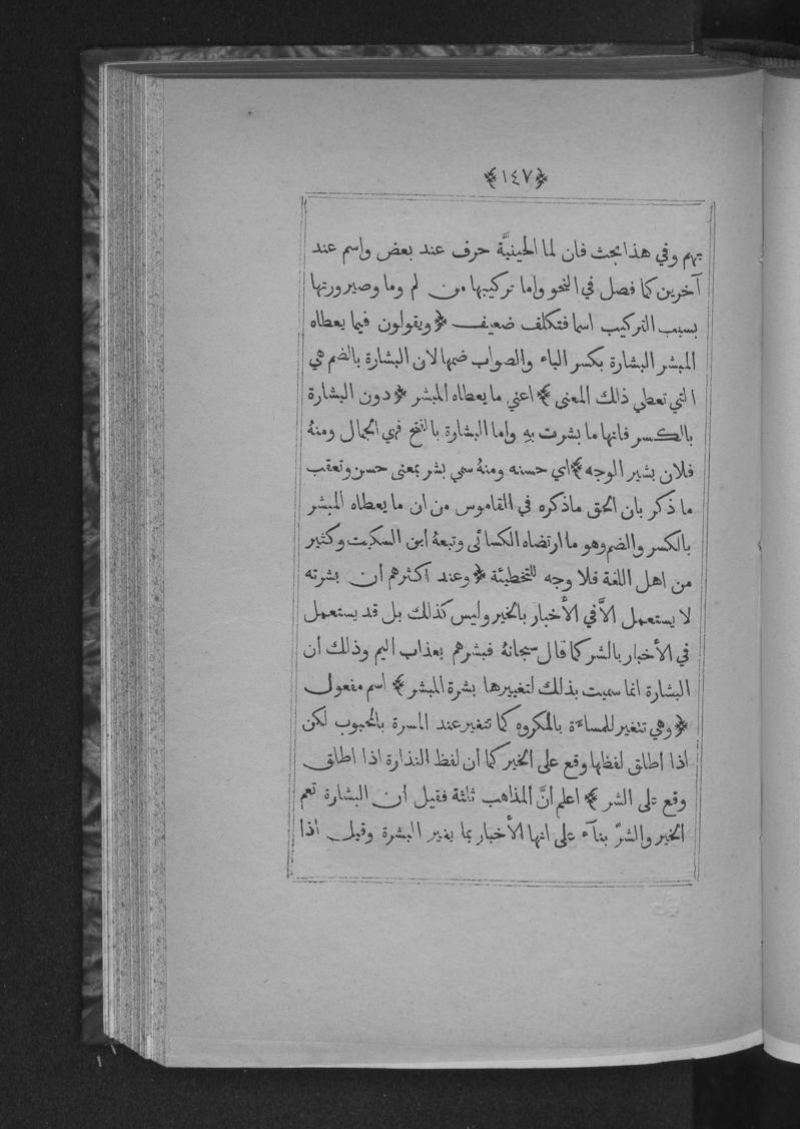 ﴿١٤٧﴾
بهم وفي هذا بحث فان لما الحينيَّة حرف عند بعض واسم عند
آخرين كما فصل في النحو واما تركيبها من لم وما وصيرورتها
بسبب التركيب اسما فتكلف ضعيف ﴿ ويقولون فيما يعطاه
المبشر البشارة بكسر الباء والصواب ضمها لان البشارة بالضم هي
التي تعطي ذلك المعنى ﴾ اعني ما يعطاه المبشر ﴿ دون البشارة
بالكسر فانها ما بشرت بهِ واما البشارة بالفتح فهي الجمال ومنهُ
فلان بشير الوجه ﴾ اي حسنه ومنهُ سمي بشر بمعنى حسن وتعقب
ما ذكر بان الحق ماذكره في القاموس من ان ما يعطاه المبشر
بالكسر والضم وهو ما ارتضاه الكسائى وتبعهُ ابن السكيت وكثير
من اهل اللغة فلا وجه للتخطيئة ﴿ وعند اكثرهم أن بشرته
لا يستعمل الاَّ في الأخبار بالخير وليس كذلك بل قد يستعمل
في الأخبار بالشر كما قال سبحانهُ فبشرهم بعذاب اليم وذلك أن
البشارة انما سميت بذلك لتغييرها بشرة المبشر ﴾ اسم مفعول
﴿ وهي تتغير للمساءة بالمكروه كما تتغير عند المسرة بالمحبوب لكن
اذا اطلق لفظها وقع على الخير كما أن لفظ النذارة اذا اطلق
وقع على الشر ﴾ اعلم انَّ المذاهب ثلثة فقيل أن البشارة تعم
الخير والشرّ بنآء على انها الأخبار بما يغير البشرة وقيل اذا